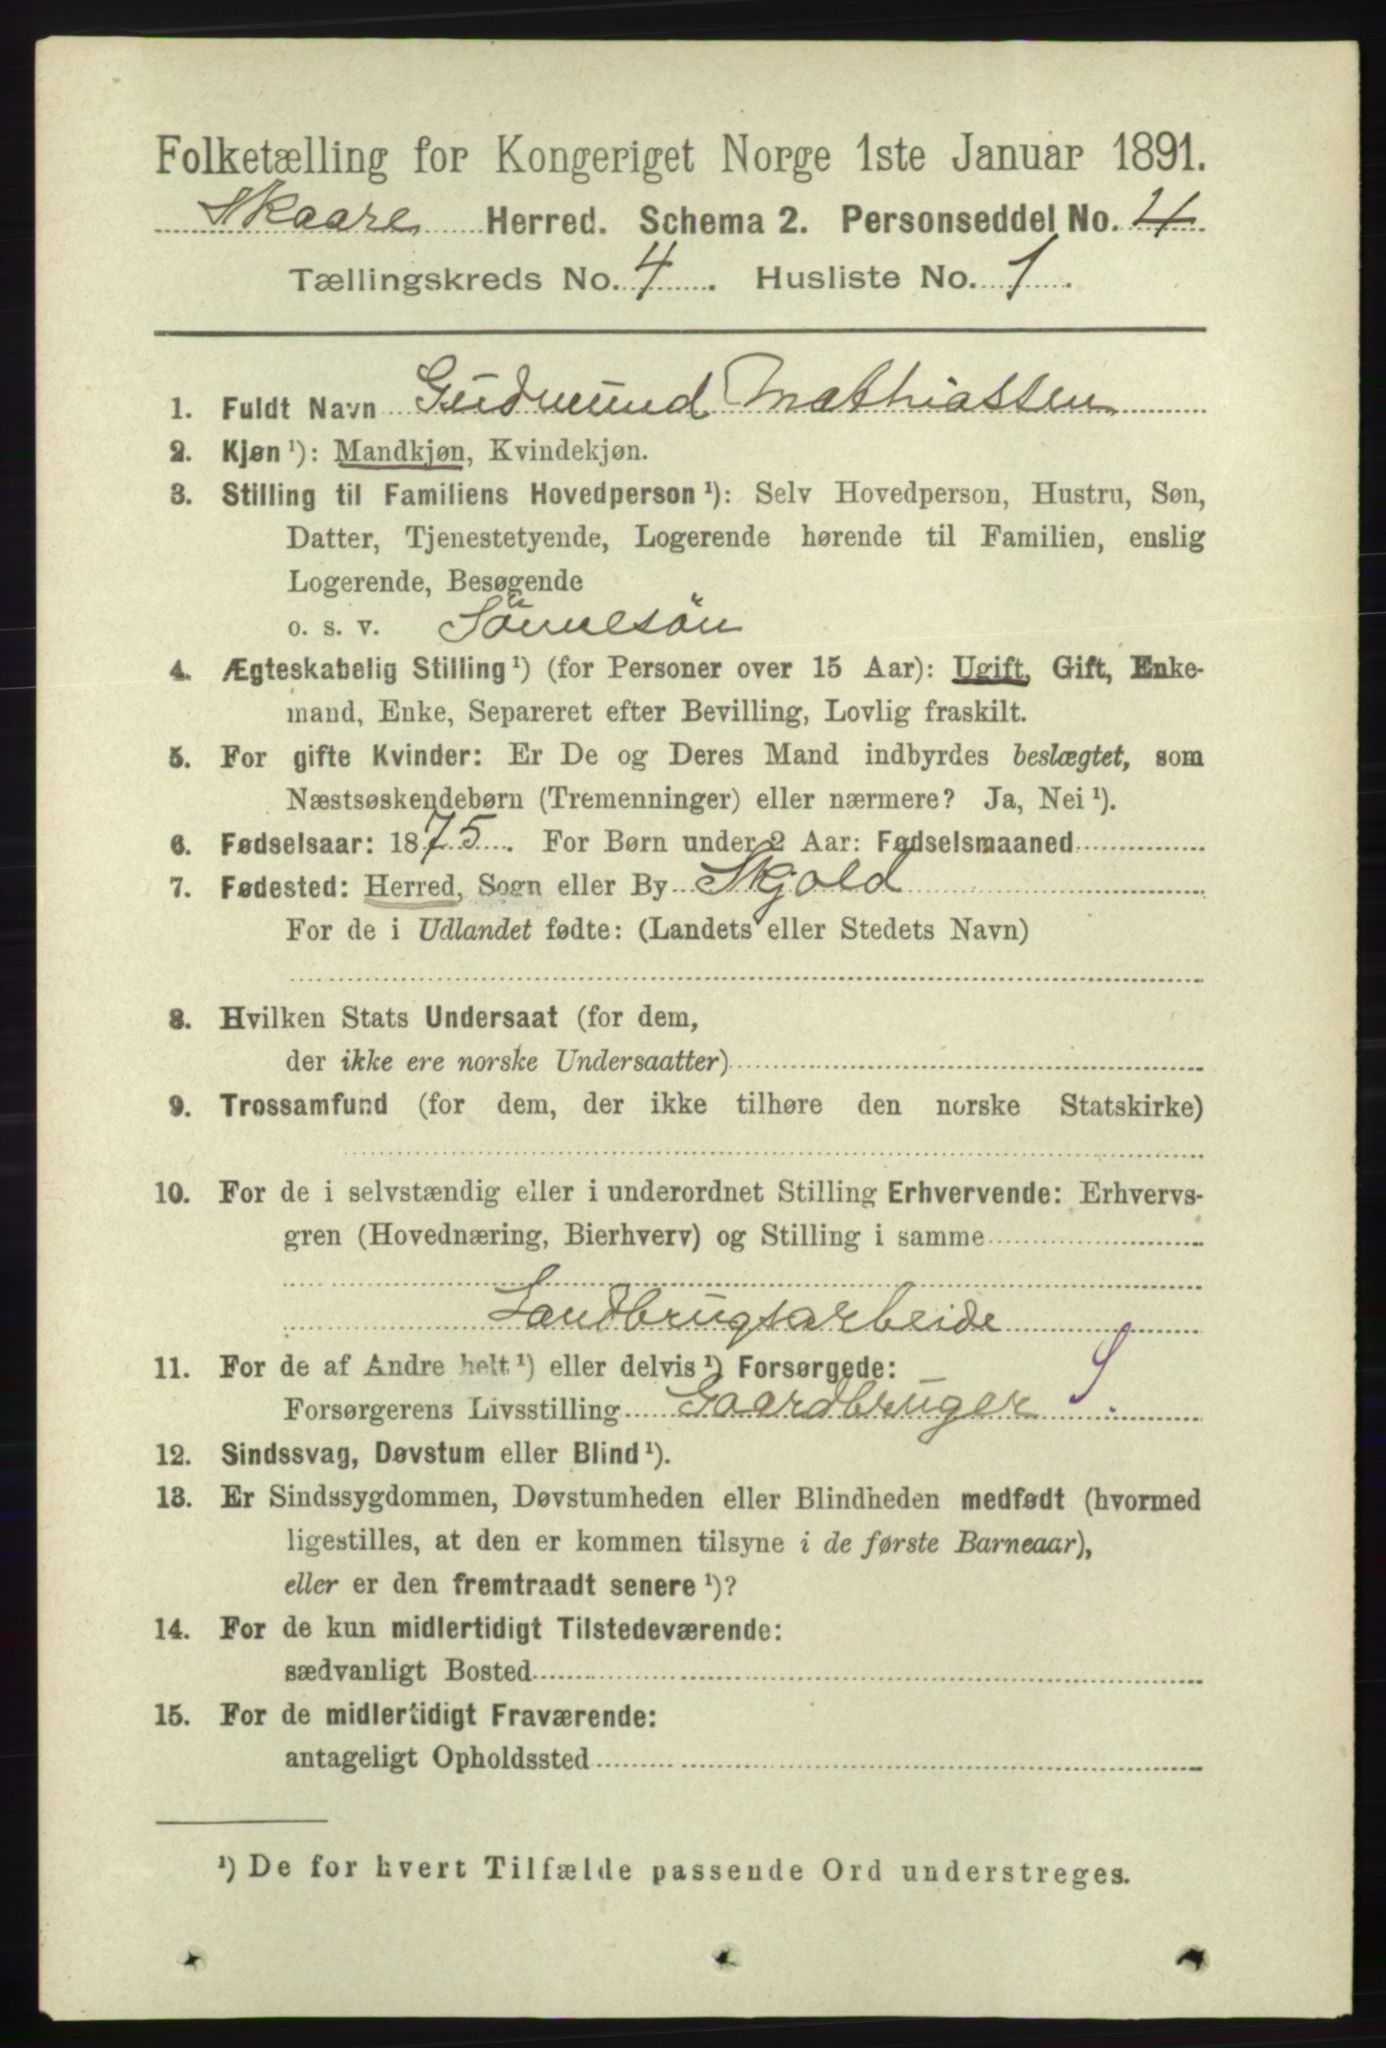 Folketælling for Kongeriget Norge 1ste Januar 1891.
Skaare Herred. Schema 2. Personseddel No. 4
Tællingskreds No. 4. Husliste No. 1.
1. Fuldt Navn Gudmund Mathiassen
2. Kjøn ¹): Mandkjøn, Kvindekjøn.
3. Stilling til Familiens Hovedperson ¹): Selv Hovedperson, Hustru, Søn,
Datter, Tjenestetyende, Logerende hørende til Familien, enslig
Logerende, Besøgende
o. s. v. Sönnesön
4. Ægteskabelig Stilling ¹) (for Personer over 15 Aar): Ugift, Gift, Enke-
mand, Enke, Separeret efter Bevilling, Lovlig fraskilt.
5. For gifte Kvinder: Er De og Deres Mand indbyrdes beslægtet, som
Næstsøskendebørn (Tremenninger) eller nærmere? Ja, Nei ¹).
6. Fødselsaar: 1875. For Børn under 2 Aar: Fødselsmaaned
7. Fødested: Herred, Sogn eller By Skjold
For de i Udlandet fødte: (Landets eller Stedets Navn)
8. Hvilken Stats Undersaat (for dem,
der ikke ere norske Undersaatter)
9. Trossamfund (for dem, der ikke tilhøre den norske Statskirke)
10. For de i selvstændig eller i underordnet Stilling Erhvervende: Erhvervs-
gren (Hovednæring, Bierhverv) og Stilling i samme
Landbrugsarbeide
11. For de af Andre helt ¹) eller delvis ¹) Forsørgede:
Forsørgerens Livsstilling Gaardbruger
12. Sindssvag, Døvstum eller Blind ¹).
13. Er Sindssygdommen, Døvstumheden eller Blindheden medfødt (hvormed
ligestilles, at den er kommen tilsyne i de første Barneaar),
eller er den fremtraadt senere ¹)?
14. For de kun midlertidigt Tilstedeværende:
sædvanligt Bosted
15. For de midlertidigt Fraværende:
antageligt Opholdssted
¹) De for hvert Tilfælde passende Ord understreges.